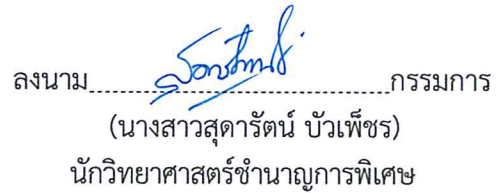 ลงนาม........................................กรรมการ
(นางสาวสุดารัตน์ บัวเพ็ชร)
นักวิทยาศาสตร์ชำนาญการพิเศษ